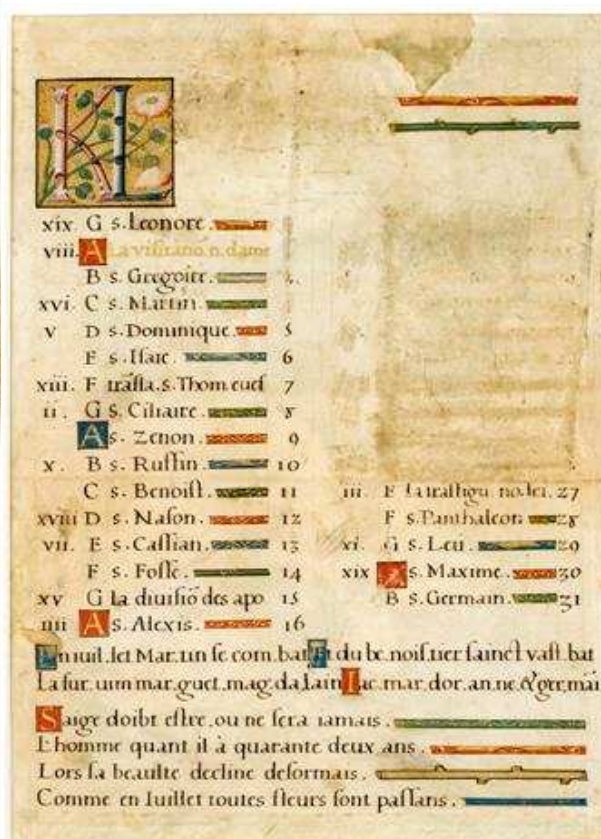 KL
xix G s. Leonore.
viii. A La visitatio n. dame
B s. Gregoire. 3
xvi. C s. Martin.
v D s. Dominique. 5
E s. Isaie. 6
xiii. F trasla. s. Thom euesf 7
ii. G s. Ciliaire. 8
A s. Zenon. 9
x. B s. Ruffin. 10
C s. Benoist. 11
xviii D s. Nason. 12
vii. E s. Cassian. 13
F s. Fosse. 14
xv G La diuisiō des apo 15
iiii A s. Alexis. 16
iii. E la trassigu. no. sei. 27
F s. Panthaleon. 28
xi. G s. Leu. 29
xix A s. Maxime. 30
B s. Germain. 31
En iuil. let Mar. tin se com. bat Et du be. noist. tier sainct vast. bat
La sur. uim mar. guet. mag. da. lain Iac. mar. dor. an. ne & ger. mai
Saige doibt estre, ou ne sera iamais.
L'homme quant il à quarante deux ans.
Lors sa beaulte decline desormais.
Comme en Iuillet toutes fleurs sont passans.